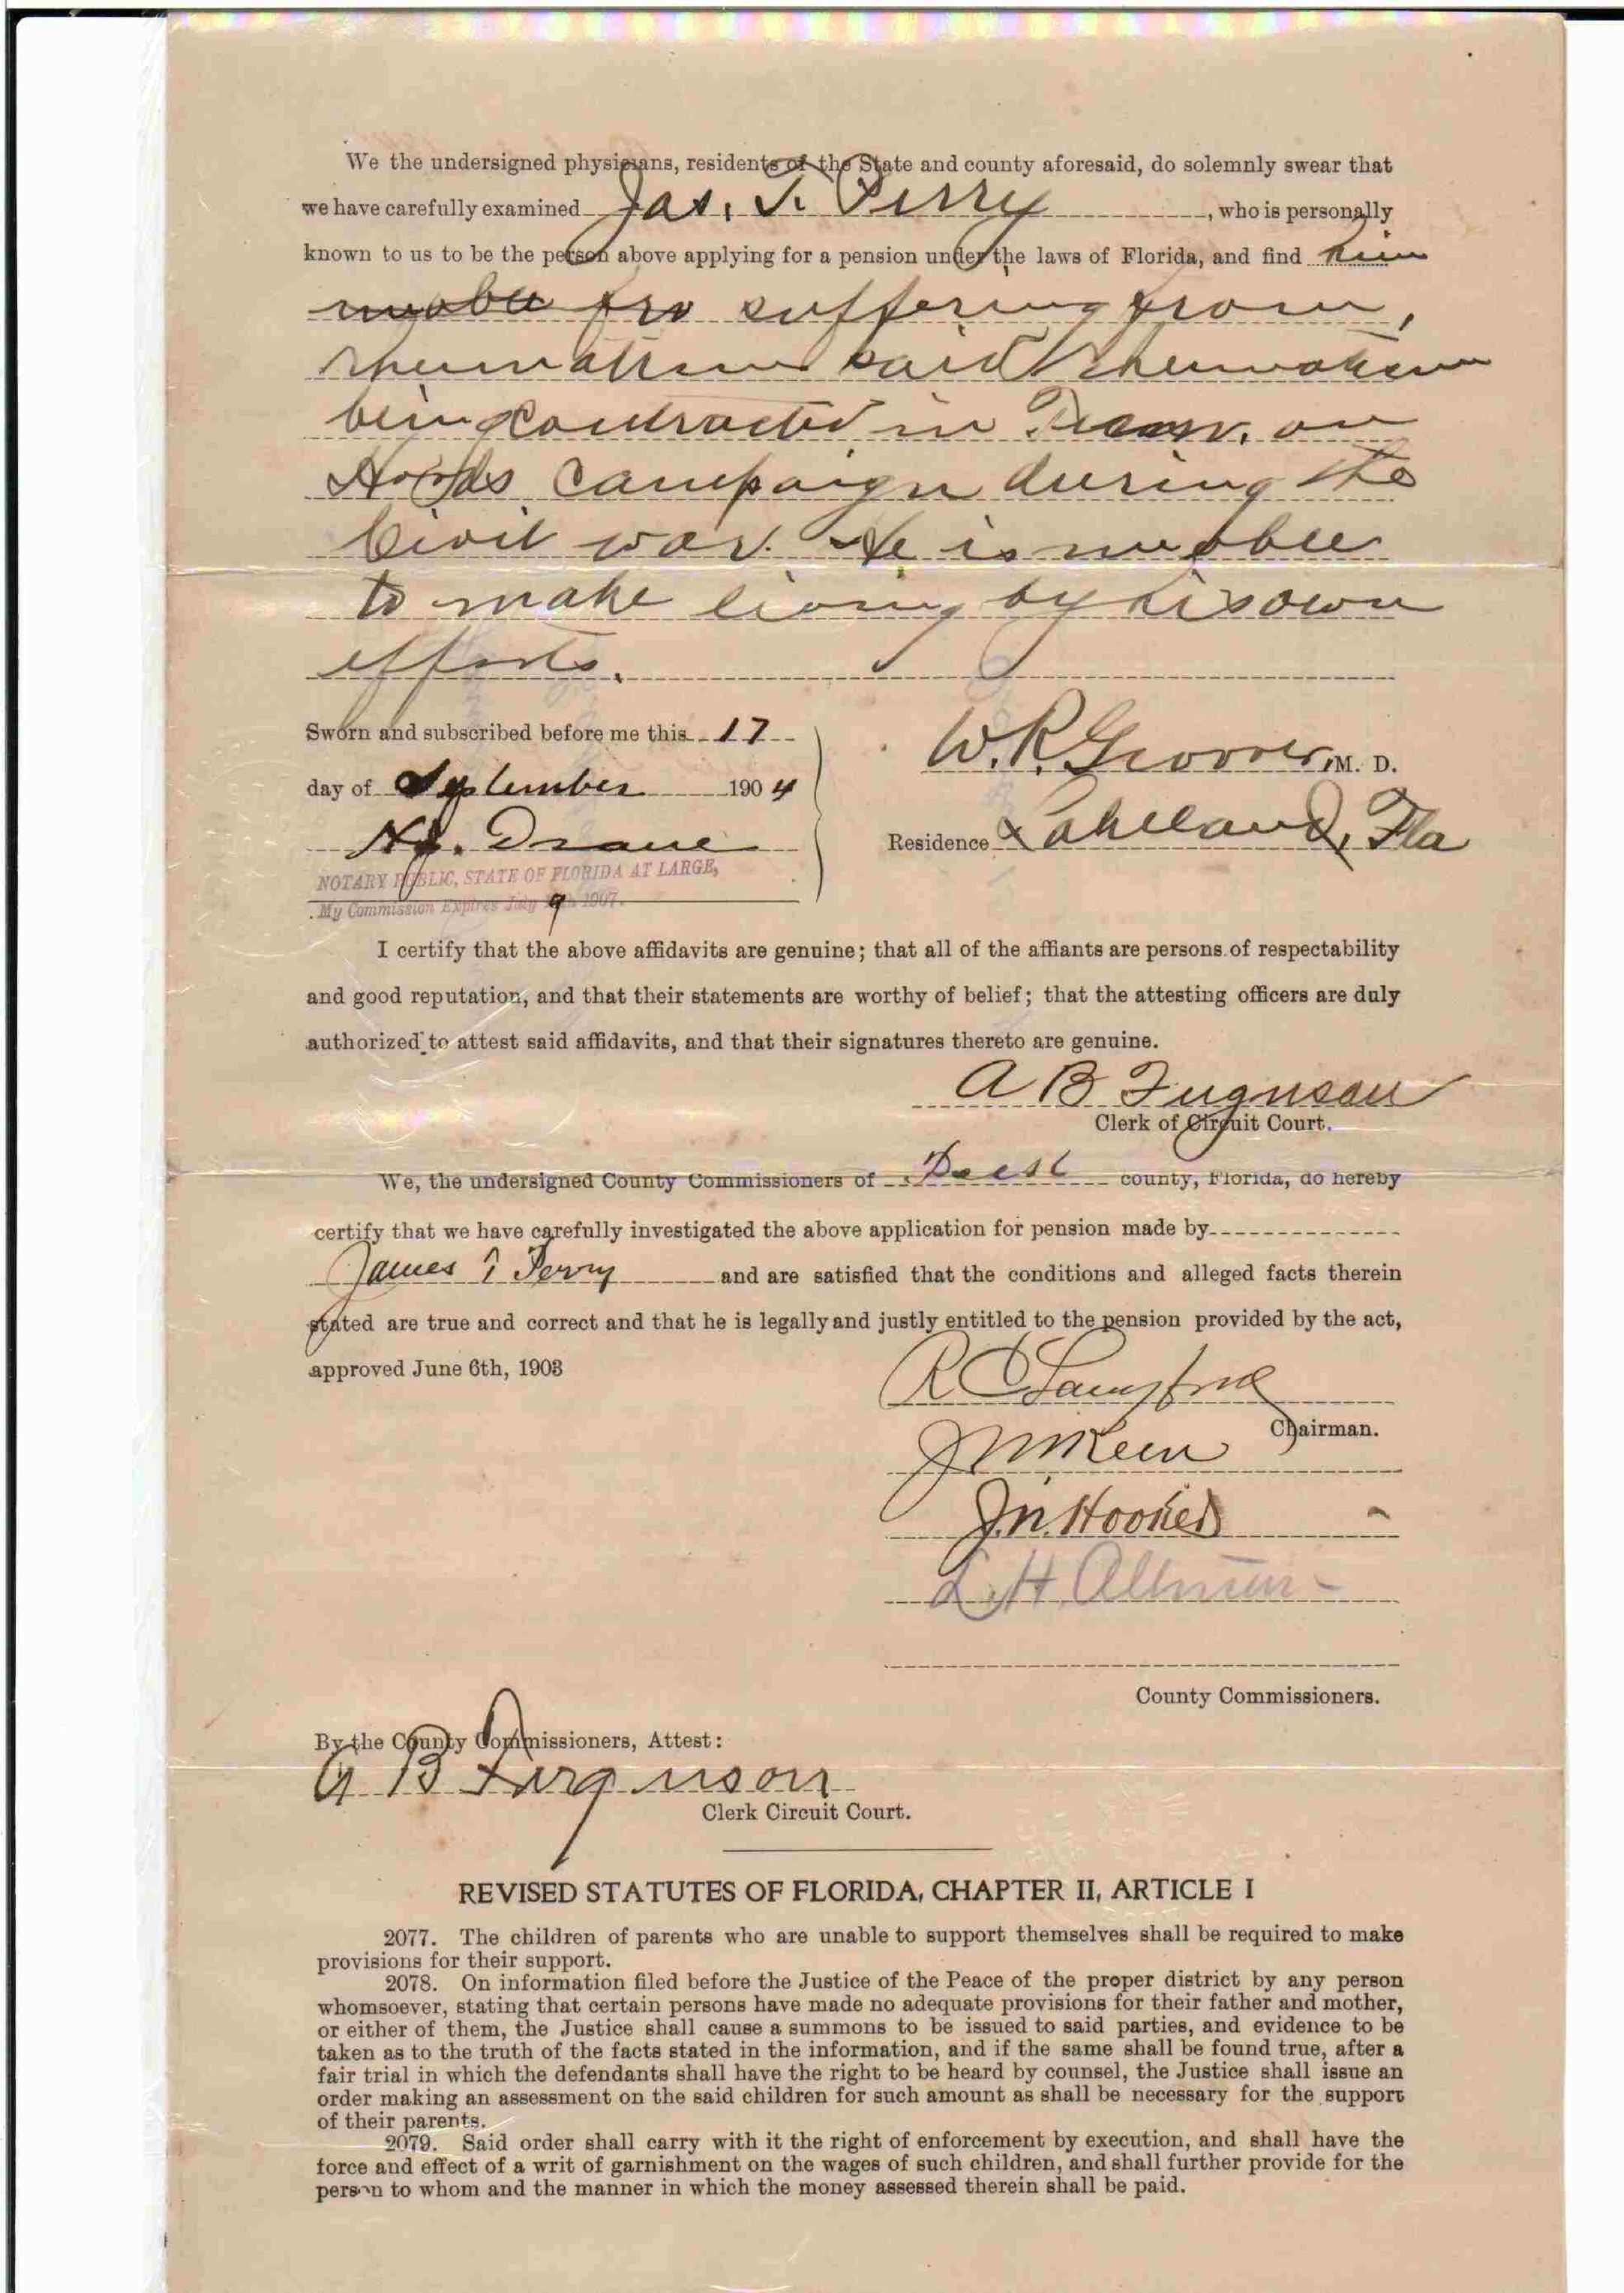 We the undersigned physicians, residents of the State and county aforesaid, do solemnly swear that
we have carefully examined Jas. T. Perry, who is personally
known to us to be the person above applying for a pension under the laws of Florida, and find him
suffering from,
rheumatism said Rheumatism
being contracted in Tenn. on
Hoods campaign during the
Civil war. He is unable
to make living by his own
efforts.
Sworn and subscribed before me this 17
day of September 1904
Drane
NOTARY PUBLIC, STATE OF FLORIDA AT LARGE,
My Commission Expires July 9 1907.
W. R. Groover, M. D.
Residence Lakeland, Fla
I certify that the above affidavits are genuine; that all of the affiants are persons of respectability
and good reputation, and that their statements are worthy of belief; that the attesting officers are duly
authorized to attest said affidavits, and that their signatures thereto are genuine.
A B Ferguson
Clerk of Circuit Court.
We, the undersigned County Commissioners of county, Florida, do hereby
certify that we have carefully investigated the above application for pension made by
James T Perry and are satisfied that the conditions and alleged facts therein
stated are true and correct and that he is legally and justly entitled to the pension provided by the act,
approved June 6th, 1903
R C Langford
Chairman.
J M Keen
J. N. Hooker
L. H.
County Commissioners.
By the County Commissioners, Attest:
A B Ferguson
Clerk Circuit Court.
REVISED STATUTES OF FLORIDA, CHAPTER II, ARTICLE I
2077. The children of parents who are unable to support themselves shall be required to make
provisions for their support.
2078. On information filed before the Justice of the Peace of the proper district by any person
whomsoever, stating that certain persons have made no adequate provisions for their father and mother,
or either of them, the Justice shall cause a summons to be issued to said parties, and evidence to be
taken as to the truth of the facts stated in the information, and if the same shall be found true, after a
fair trial in which the defendants shall have the right to be heard by counsel, the Justice shall issue an
order making an assessment on the said children for such amount as shall be necessary for the support
of their parents.
2079. Said order shall carry with it the right of enforcement by execution, and shall have the
force and effect of a writ of garnishment on the wages of such children, and shall further provide for the
person to whom and the manner in which the money assessed therein shall be paid.